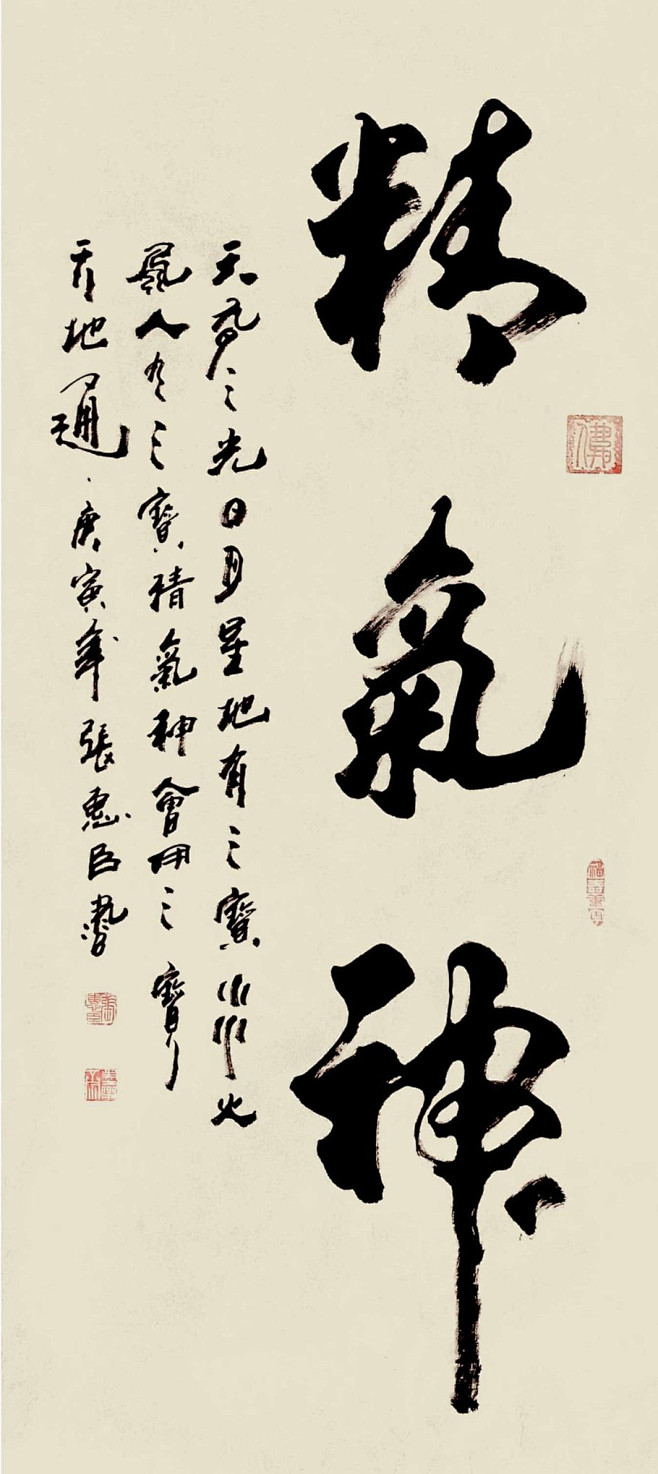 精氣神
天有三光日月星地有三寶水火
風人有三寶精氣神會用三寶
天地通庚寅年張惠臣書